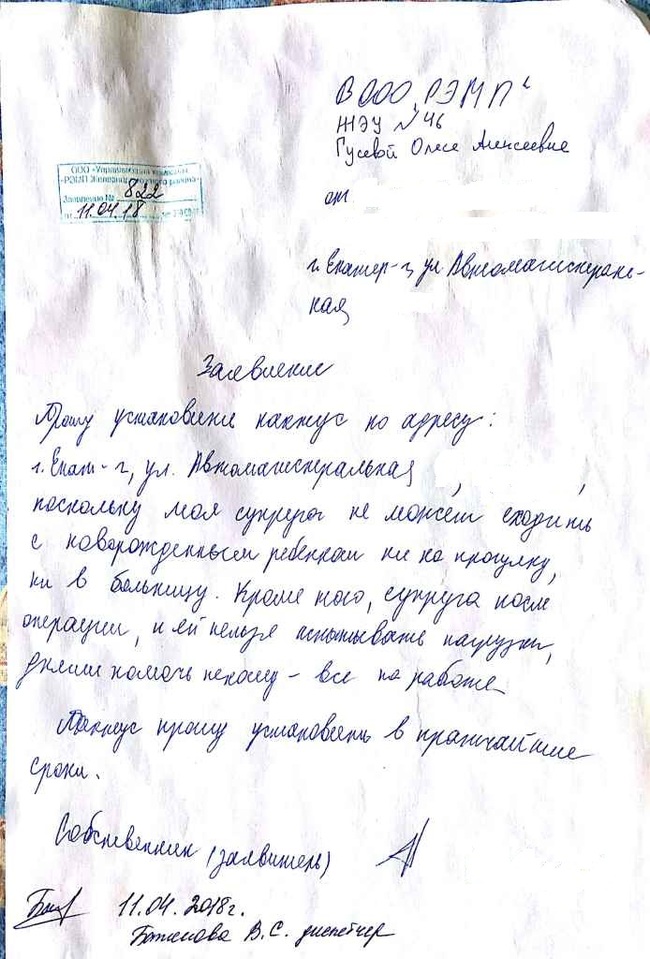 В ООО "РЭМП"
ЖЭУ №46
Гусевой Олесе Алексеевне
ООО «Управляющая компания
«РЭМП Железнодорожного района»
Заявление № 822
11.04.18
от
г. Екатер-г, ул Автомагистраль-
ная
Заявление
Прошу установить пандус по адресу:
г. Екат-г, ул. Автомагистральная
поскольку моя супруга не может сходить
с новорожденным ребенком ни на прогулку,
ни в больницу. Кроме того, супруга после
операции, и ей нельзя испытывать нагрузки,
днями помочь некому - все на работе
Пандус прошу установить в кратчайшие
сроки.
Собственник (заявитель)
11.04.2018г.
Баженова В.С. диспетчер